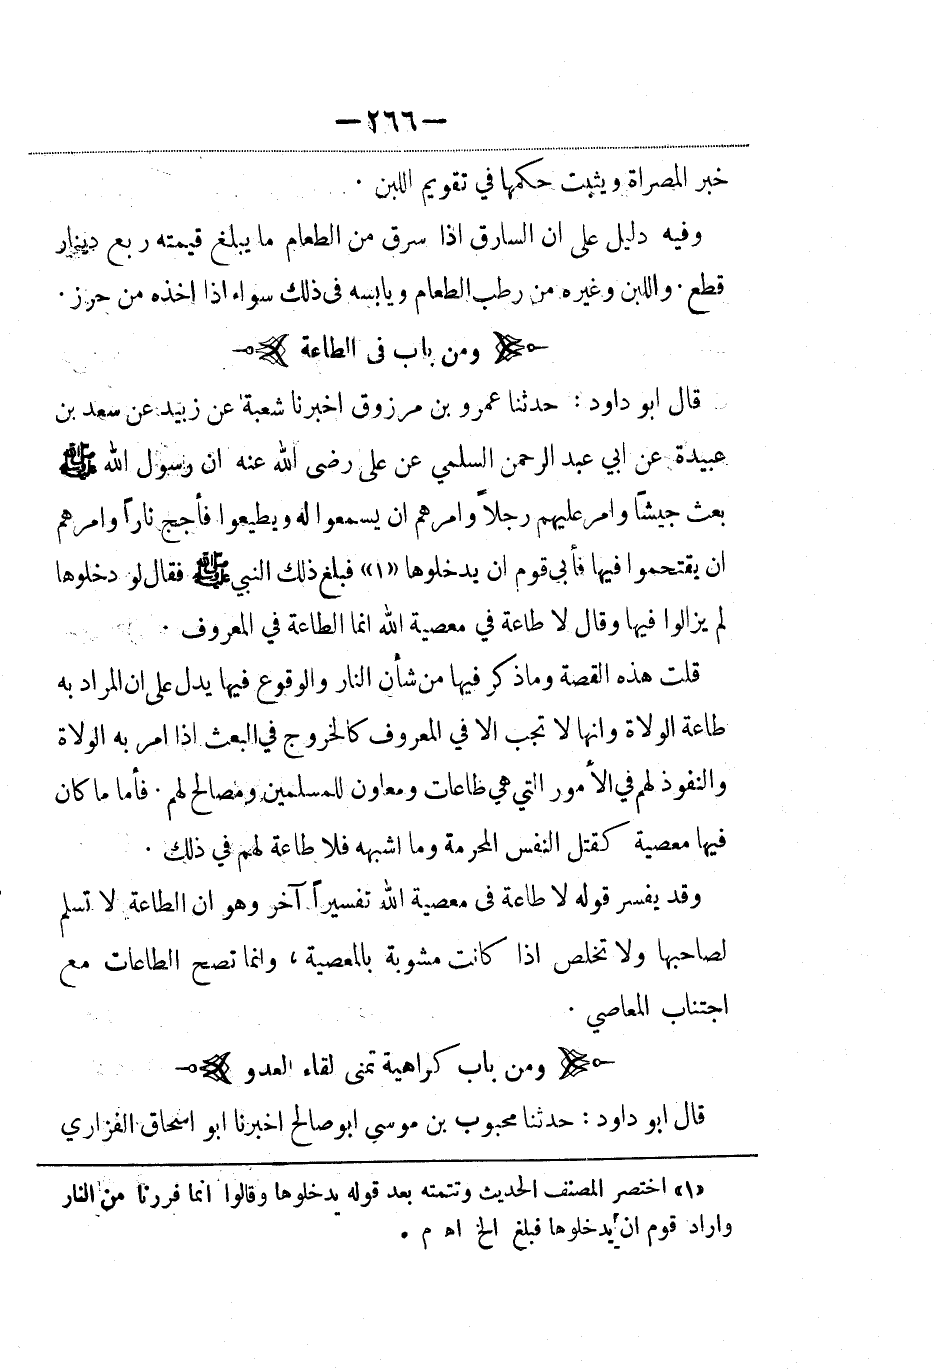 — ٢٦٦ —
خبر المصراة ويثبت حكمها في تقويم اللبن ·
وفيه دليل على ان السارق اذا سرق من الطعام ما يبلغ قيمته ربع دينار
قطع · واللبن وغيره من رطب الطعام ويابسه في ذلك سواء اذا اخذه من حرز ·
ومن باب في الطاعة
قال ابو داود : حدثنا عمرو بن مرزوق اخبرنا شعبة عن زبيد عن سعد بن
عبيدة عن ابي عبد الرحمن السلمي عن علي رضى الله عنه ان رسول الله ﷺ
بعث جيشاً وامر عليهم رجلاً وامرهم ان يسمعوا له ويطيعوا فأجج ناراً وامرهم
ان يقتحموا فيها فأبى قوم ان يدخلوها «١» فبلغ ذلك النبي ﷺ فقال لو دخلوها
لم يزالوا فيها وقال لا طاعة في معصية الله انما الطاعة في المعروف ·
قلت هذه القصة وما ذكر فيها من شأن النار والوقوع فيها يدل على ان المراد به
طاعة الولاة وانها لا تجب الا في المعروف كالخروج في البعث اذا امر به الولاة
والنفوذ لهم في الأمور التي هي طاعات ومعاون للمسلمين ومصالح لهم · فأما ما كان
فيها معصية كقتل النفس المحرمة وما اشبهه فلا طاعة لهم في ذلك ·
وقد يفسر قوله لا طاعة فى معصية الله تفسيراً آخر وهو ان الطاعة لا تسلم
لصاحبها ولا تخلص اذا كانت مشوبة بالمعصية ، وانما تصح الطاعات مع
اجتناب المعاصي ·
ومن باب كراهية تمنى لقاء العدو
قال ابو داود : حدثنا محبوب بن موسي ابو صالح اخبرنا ابو اسحاق الفزاري
«١» اختصر المصنف الحديث وتتمته بعد قوله يدخلوها وقالوا انما فررنا من النار
واراد قوم ان يدخلوها فبلغ الخ اه م .